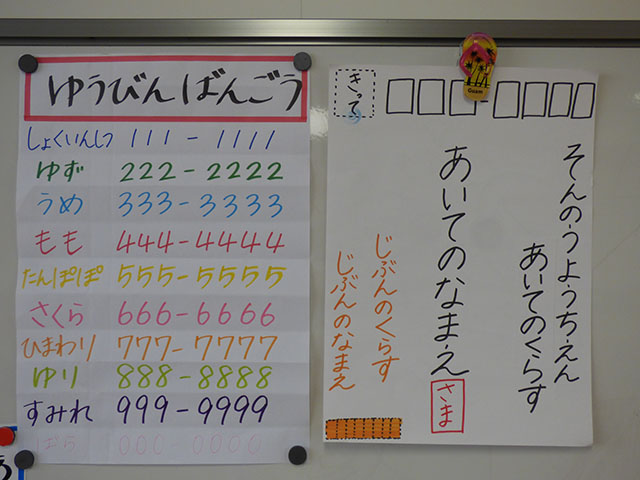 ゆうびんばんごう
しょくいんしつ 111-1111
ゆず 222-2222
うめ 333-3333
もも 444-4444
たんぽぽ 555-5555
さくら 666-6666
ひまわり 777-7777
ゆり 888-8888
すみれ 999-9999
ばら 000 0000
きって
そんのうようちえん
あいてのくらす
あいてのなまえ さま
じぶんのくらす
じぶんのなまえ
Guam